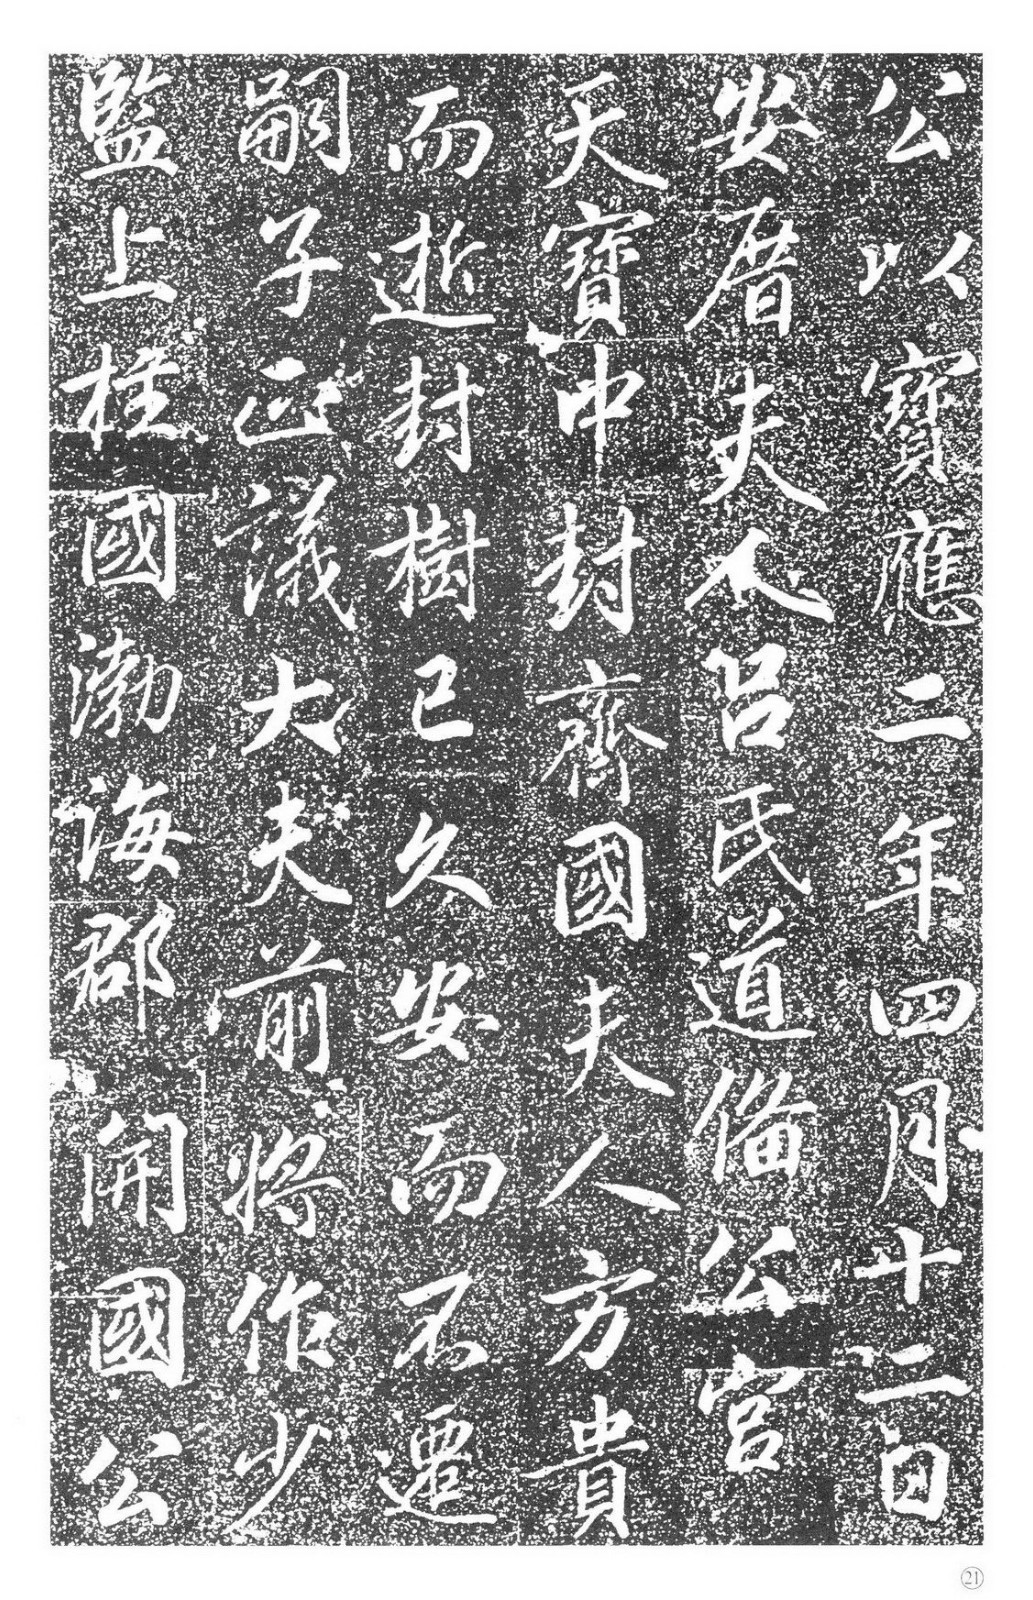 公以寶應二年四月十二日
安厝夫人吕氏道俻公官
天寶中封齊國夫人方貴
而逝封樹已久安而不遷
嗣子正議大夫前將作少
監上柱國渤海郡開國公
21